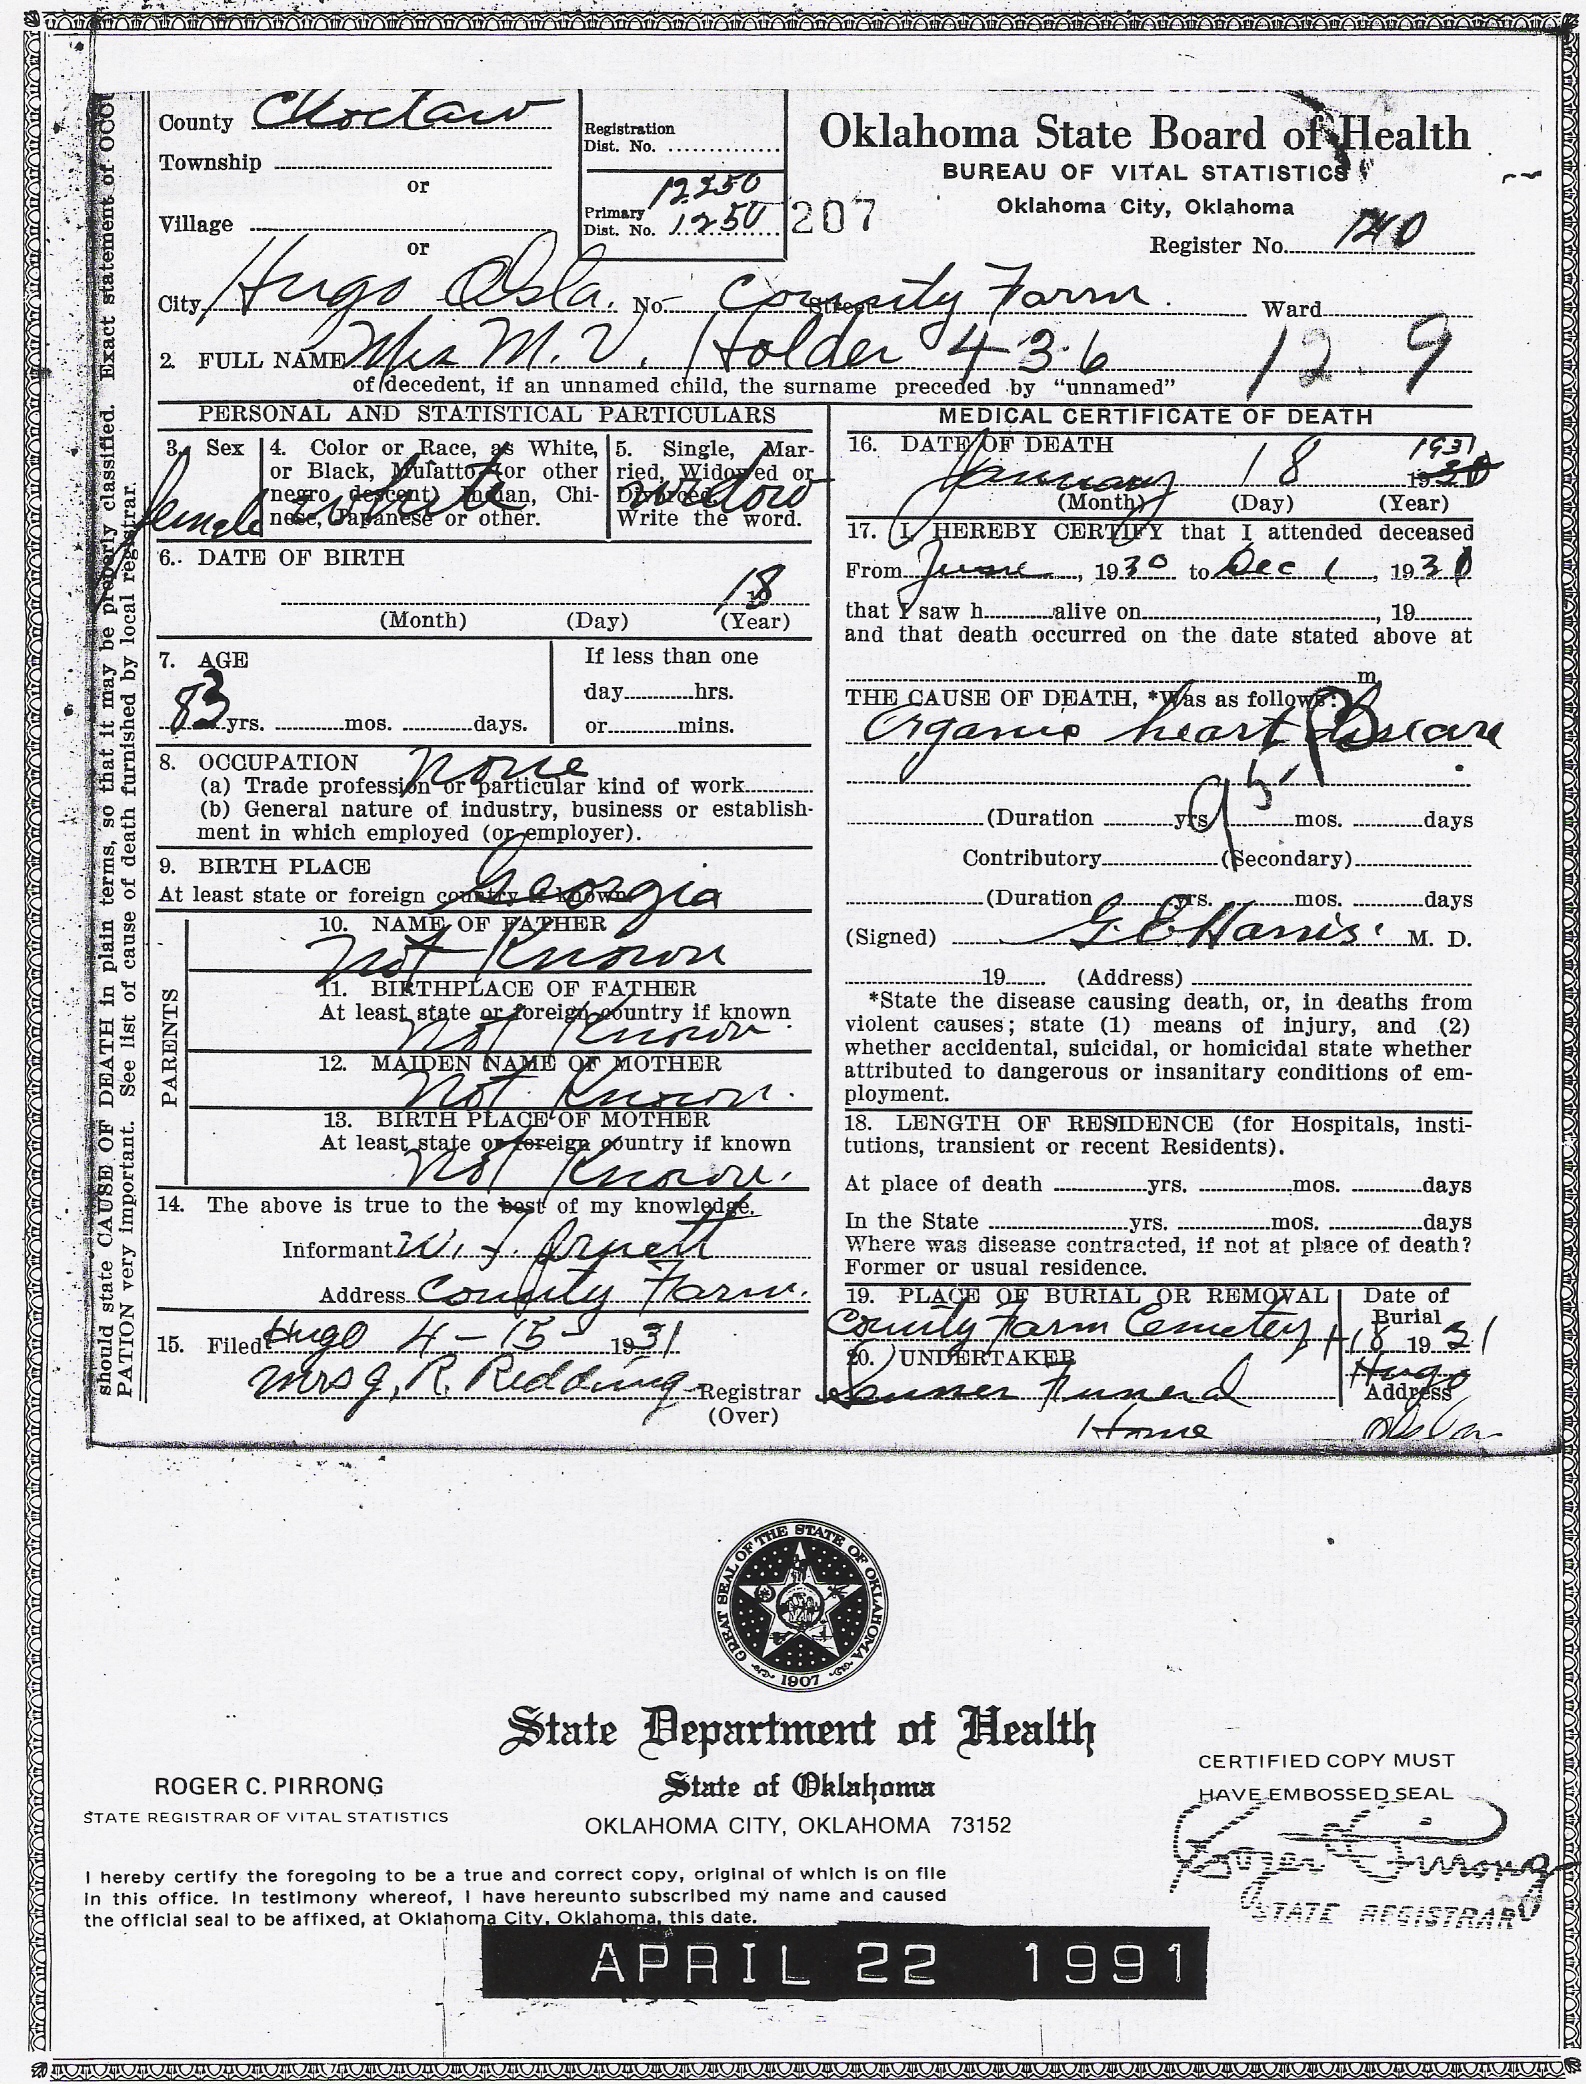 should state CAUSE OF DEATH in plain terms, so that it may be properly classified. Exact statement of OCCU
PATION very important. See list of cause of death furnished by local registrar.
County Choctaw
Township
or
Village
or
Registration
Dist. No.
12250
Primary
Dist. No. 1250
207
Oklahoma State Board of Health
BUREAU OF VITAL STATISTICS
Oklahoma City, Oklahoma
Register No.
City Hugo Okla. No County Farm. Street Ward
2. FULL NAME Mrs M. V. Holder 436 12 9
of decedent, if an unnamed child, the surname preceded by "unnamed"
PERSONAL AND STATISTICAL PARTICULARS
3. Sex
female
4. Color or Race, as White,
or Black, Mulatto (or other
negro descent) Indian, Chi-
nese, Japanese or other.
White
5. Single, Mar-
ried, Widowed or
Divorced
Write the word.
widow
6. DATE OF BIRTH
18
(Month) (Day) (Year)
7. AGE
83 yrs. mos. days.
If less than one
day hrs.
or mins.
8. OCCUPATION none
(a) Trade profession or particular kind of work
(b) General nature of industry, business or establish-
ment in which employed (or employer).
9. BIRTH PLACE
At least state or foreign country if known Georgia
PARENTS
10. NAME OF FATHER
Not Known
11. BIRTHPLACE OF FATHER
At least state or foreign country if known
Not Known
12. MAIDEN NAME OF MOTHER
Not Known.
13. BIRTH PLACE OF MOTHER
At least state or foreign country if known
Not Known.
14. The above is true to the best of my knowledge.
Informant W. T.
Address County Farm.
15. Filed Hugo 4-15- 1931
Mrs J. R. Redding Registrar
(Over)
MEDICAL CERTIFICATE OF DEATH
16. DATE OF DEATH
1931
January 18 1930
(Month) (Day) (Year)
17. I HEREBY CERTIFY that I attended deceased
From June, 1930 to Dec 1, 1930
that I saw h alive on , 19
and that death occurred on the date stated above at
m
THE CAUSE OF DEATH, *Was as follows:
Organic heart disease
95
(Duration yrs. mos. days
Contributory (Secondary)
(Duration yrs. mos. days
(Signed) G. E Harris. M. D.
19 (Address)
*State the disease causing death, or, in deaths from
violent causes; state (1) means of injury, and (2)
whether accidental, suicidal, or homicidal state whether
attributed to dangerous or insanitary conditions of em-
ployment.
18. LENGTH OF RESIDENCE (for Hospitals, insti-
tutions, transient or recent Residents).
At place of death yrs. mos. days
In the State yrs. mos. days
Where was disease contracted, if not at place of death?
Former or usual residence.
19. PLACE OF BURIAL OR REMOVAL
County Farm Cemetery
Date of
Burial
1-18 1931
20. UNDERTAKER
Funeral
Home
Hugo
Address
Okla
GREAT SEAL OF THE STATE OF OKLAHOMA
1907
State Department of Health
State of Oklahoma
OKLAHOMA CITY, OKLAHOMA 73152
ROGER C. PIRRONG
STATE REGISTRAR OF VITAL STATISTICS
CERTIFIED COPY MUST
HAVE EMBOSSED SEAL
Roger Pirrong
STATE REGISTRAR
I hereby certify the foregoing to be a true and correct copy, original of which is on file
in this office. In testimony whereof, I have hereunto subscribed my name and caused
the official seal to be affixed, at Oklahoma City, Oklahoma, this date.
APRIL 22 1991